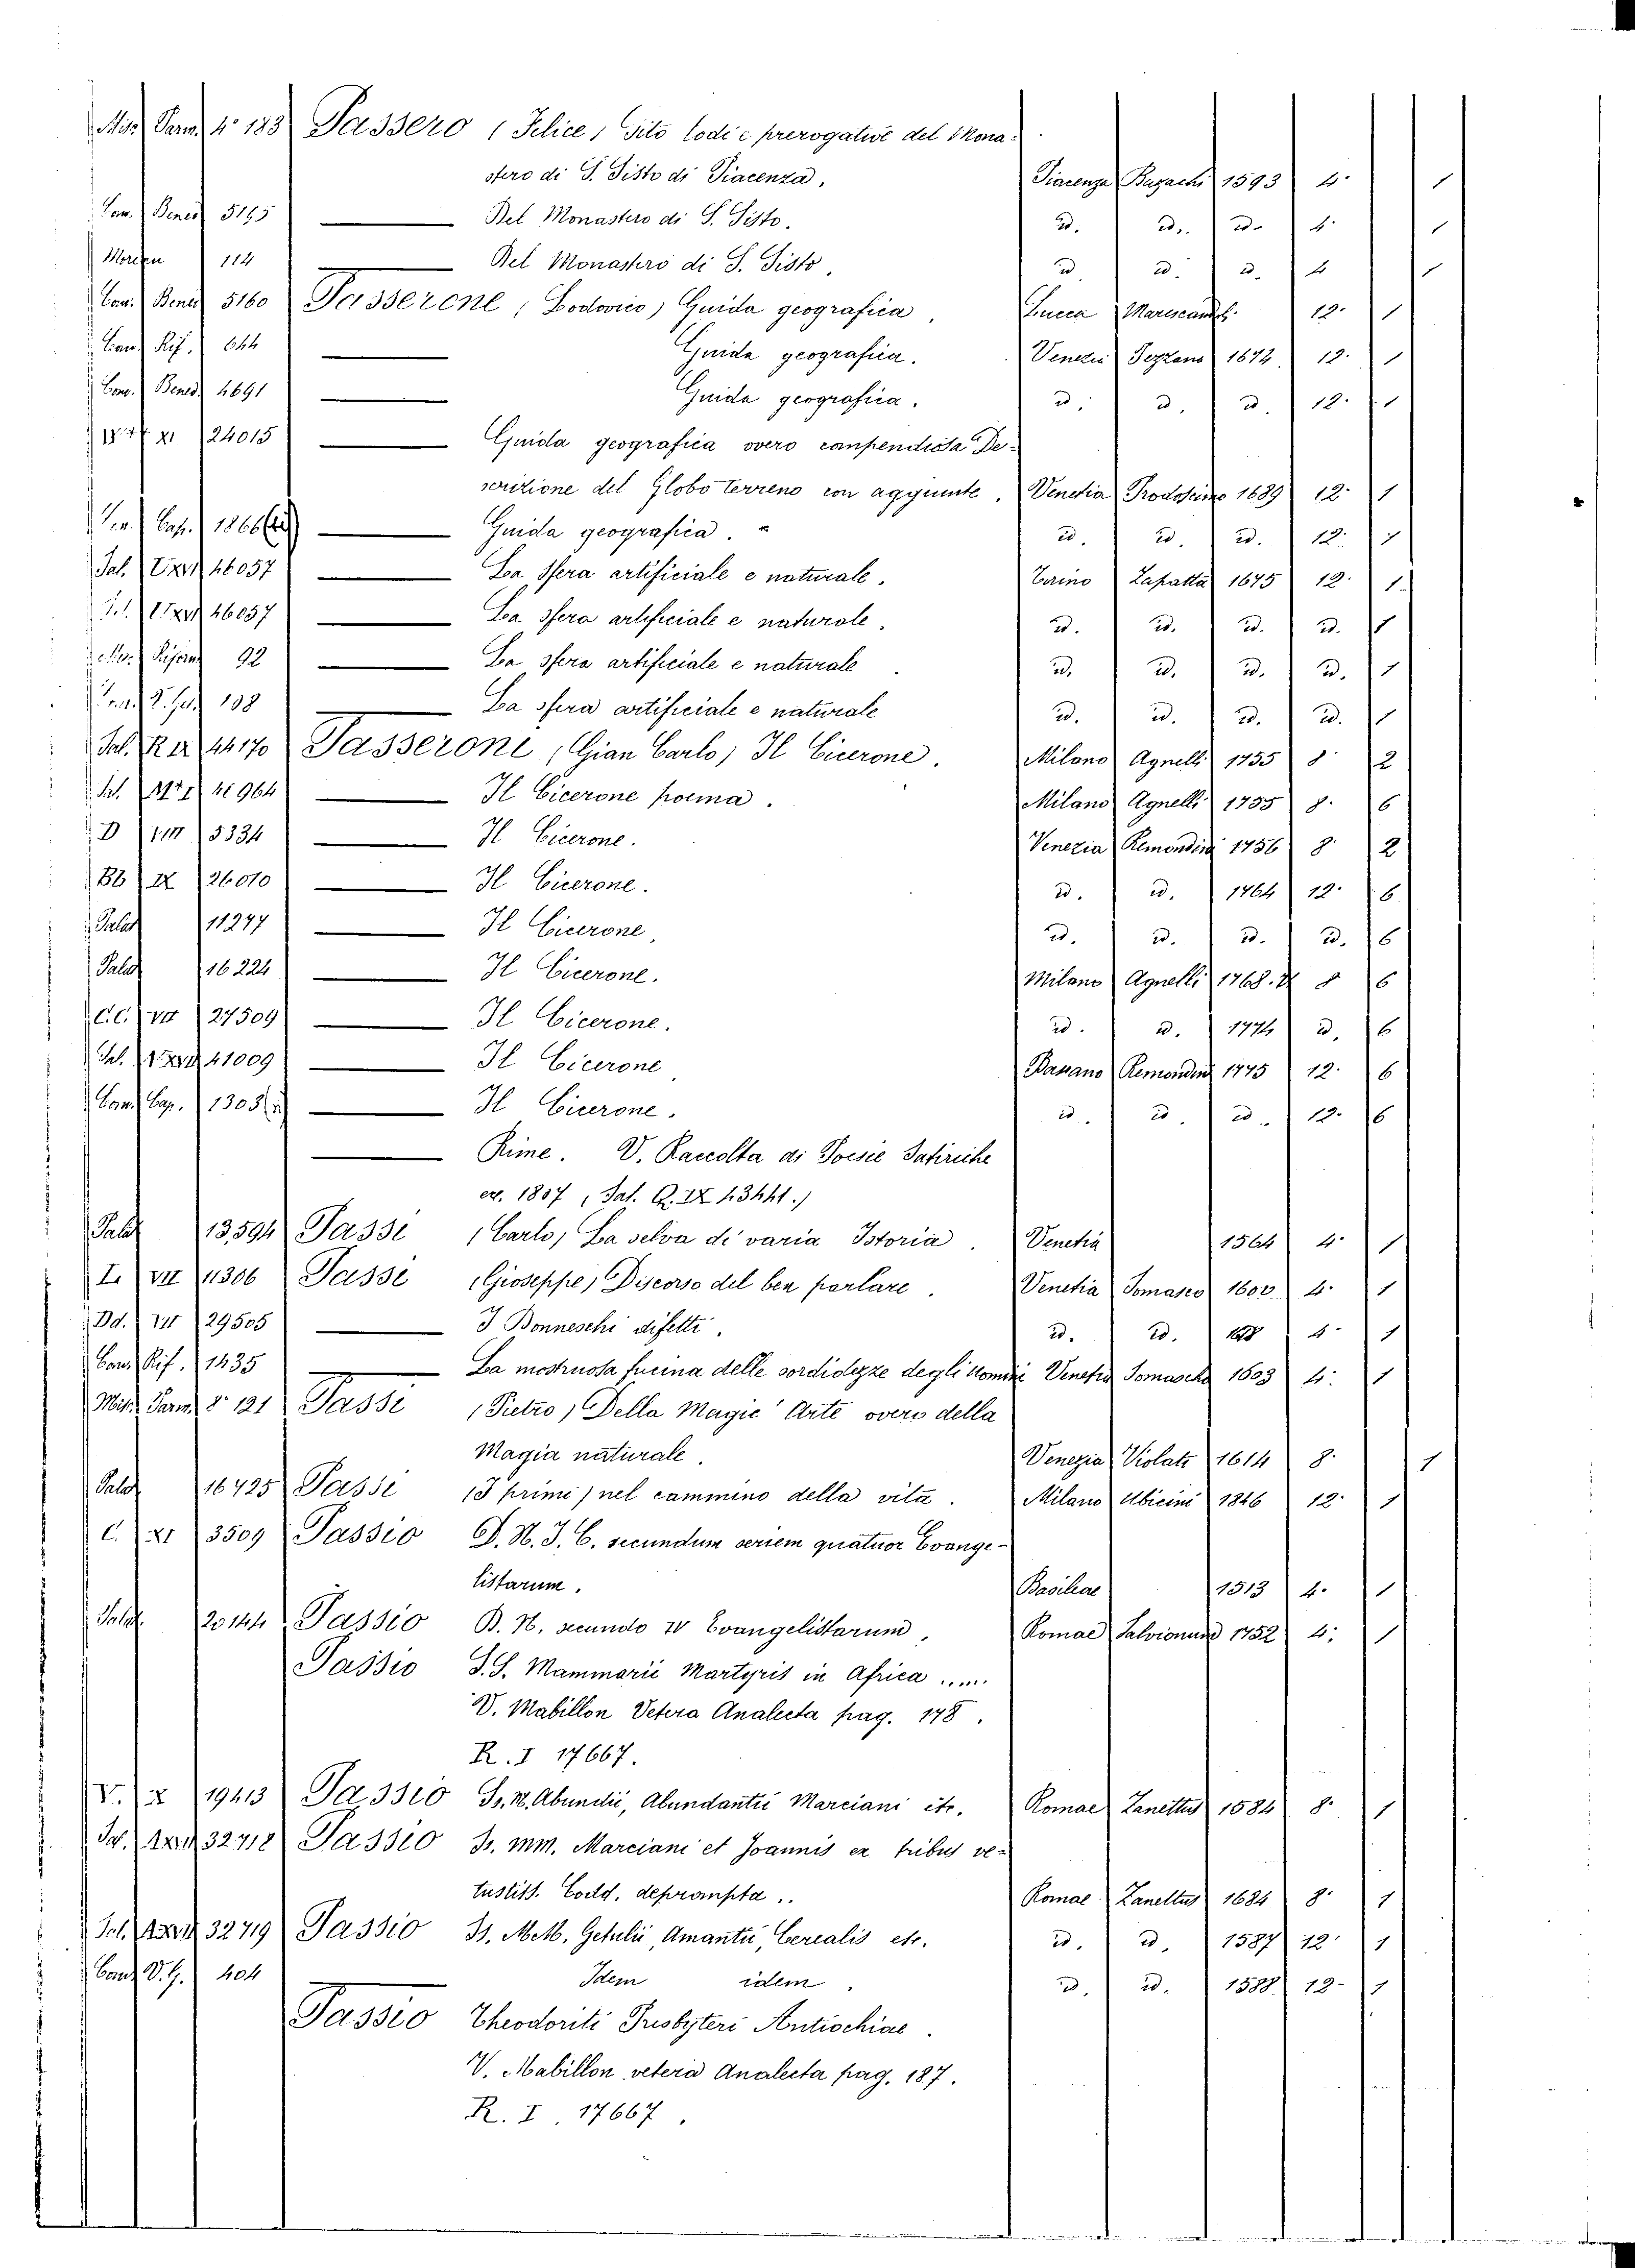 Misc. Parm. 4° 183 Passero (Felice) Sito lodi e prerogative del Mona-
stero di S. Sisto di Piacenza. Piacenza Bazachi 1593 4° 1
Conv. Bened. 5195 — Del Monastero di S. Sisto. id. id. id. 4° 1
114 — Del Monastero di S. Sisto. id. id. id. 4 1
Conv. Bened. 5160 Passerone (Lodovico) Guida geografica. Lucca Marescand. 12° 1
Conv. Rif. 644 — Guida geografica. Venezia 1672 12° 1
Conv. Bened. 4691 — Guida geografica. id. id. id. 12° 1
XI 24015 — Guida geografica overo conpendiosa De-
scrizione del Globo terreno con aggiunte. Venetia Prodocimo 1689 12° 1
Conv. Cap. 1866 — Guida geografica. id. id. id. 12° 1
Pal. 46057 — La sfera artificiale e naturale. Torino Zapatta 1675 12° 1
46057 — La sfera artificiale e naturale. id. id. id. id. 1
92 — La sfera artificiale e naturale. id. id. id. id. 1
198 — La sfera artificiale e naturale id. id. id. id. 1
Sal. R IX 44170 Passeroni (Gian Carlo) Il Cicerone. Milano Agnelli 1755 8° 2
41964 — Il Cicerone poema. Milano Agnelli 1755 8° 6
D 5334 — Il Cicerone. Venezia Remondini 1756 8° 2
Bb IX 26010 — Il Cicerone. id. id. 1764 12° 6
Palat 11277 — Il Cicerone. id. id. id. id. 6
Palat 16224 — Il Cicerone. Milano Agnelli 1768. 8 6
CC. VII 27509 — Il Cicerone. id. id. 1774 id. 6
Sal. 41009 — Il Cicerone Bassano Remondini 1775 12° 6
Conv. Cap. 1303 — Il Cicerone. id. id. id. 12° 6
— Rime. V. Raccolta di Poesie Satiriche
ec. 1807, Sal. Q. IX 43441.)
Palat 13,594 Passi (Carlo) La selva di varia Istoria. Venetia 1564 4° 1
L VII 11306 Passi (Gioseppe) Discorso del ben parlare. Venetia Somasco 1600 4° 1
Dd. VII 29505 — I Donneschi difetti. id. id. 4° 1
Conv. Rif. 1435 — La mostruosa fucina delle sordidezze degli uomini Venetia Somascho 1603 4° 1
Misc. Parm. 8° 121 Passi (Pietro) Della Magic' Arte overo della
Magia naturale. Venezia Violati 1614 8° 1
Palat 16725 Passi (I primi) nel cammino della vita. Milano Ubicini 1846 12° 1
C. XI 3509 Passio D. N. J. C. secundum seriem quatuor Evange-
listarum. Basileae 1513 4° 1
Palat. 20144 Passio D. N. secundo IV Evangelistarum. Romae Salvionum 1752 4° 1
Passio S. S. Mammarii Martyris in Africa .....
V. Mabillon Vetera Analecta pag. 178.
R. I 17667.
V. X 19413 Passio Ss. M. Abundii, Abundantii Marciani etc. Romae Zanettus 1584 8° 1
Sal. 32718 Passio Ss. mm. Marciani et Joannis ex tribus ve-
tustiss. Codd. deprompta.. Romae Zanettus 1684 8° 1
Sal. 32719 Passio Ss. MM. Getulii, Amantii, Cerealis etc. id. id. 1587 12° 1
Conv. V. G. 404 Idem idem. id. id. 1588 12° 1
Passio Theodoriti Presbyteri Antiochiae.
V. Mabillon vetera Analecta pag. 187.
R. I. 17667.